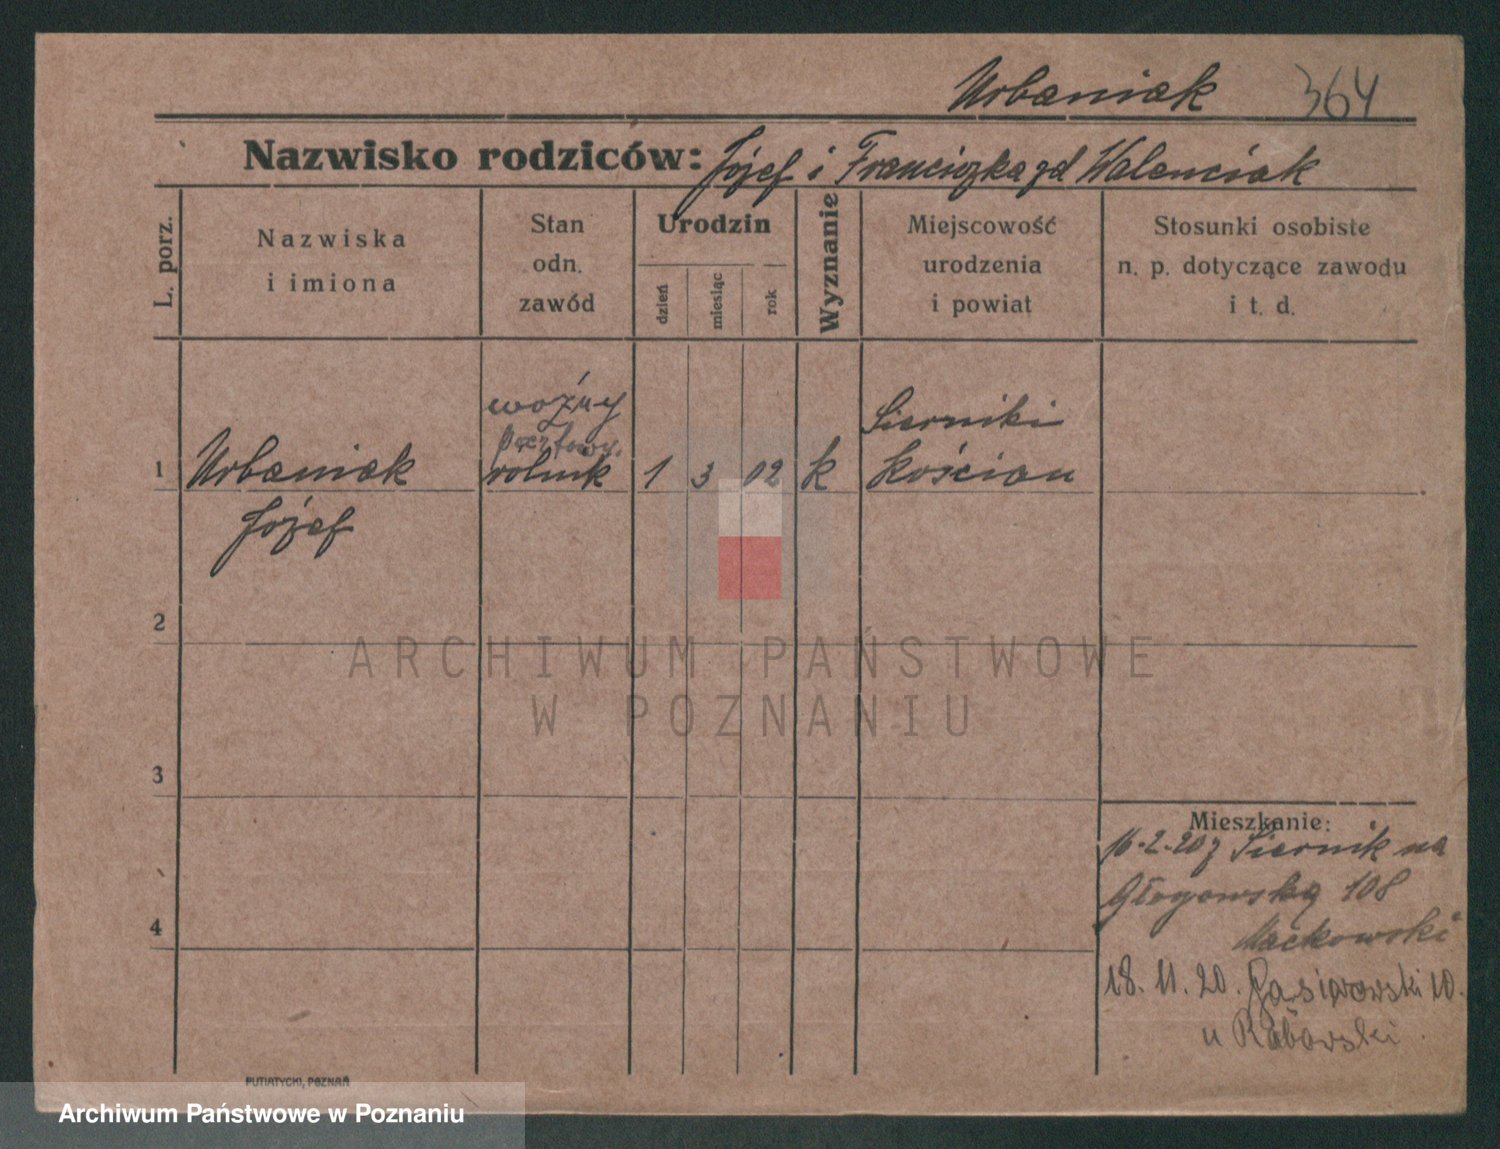 Urbaniak 364
Nazwisko rodziców: Józef i Franciszka zd Walenciak
L. porz.
Nazwiska
i imiona
Stan
odn.
zawód
Urodzin
dzień
miesiąc
rok
Wyznanie
Miejscowość
urodzenia
i powiat
Stosunki osobiste
n. p. dotyczące zawodu
i t. d.
woźny
pocztowy.
1 Urbaniak rolnik 1 3 02 k
Józef
Sierniki
Kościan
2
3
4
ARCHIWUM PAŃSTWOWE
W POZNANIU
Mieszkanie:
16.2.20 z Siernik na
Głogowską 108
Maćkowski
18.11.20. Gąsiorowski 10.
u
PUTIATYCKI, POZNAŃ
Archiwum Państwowe w Poznaniu